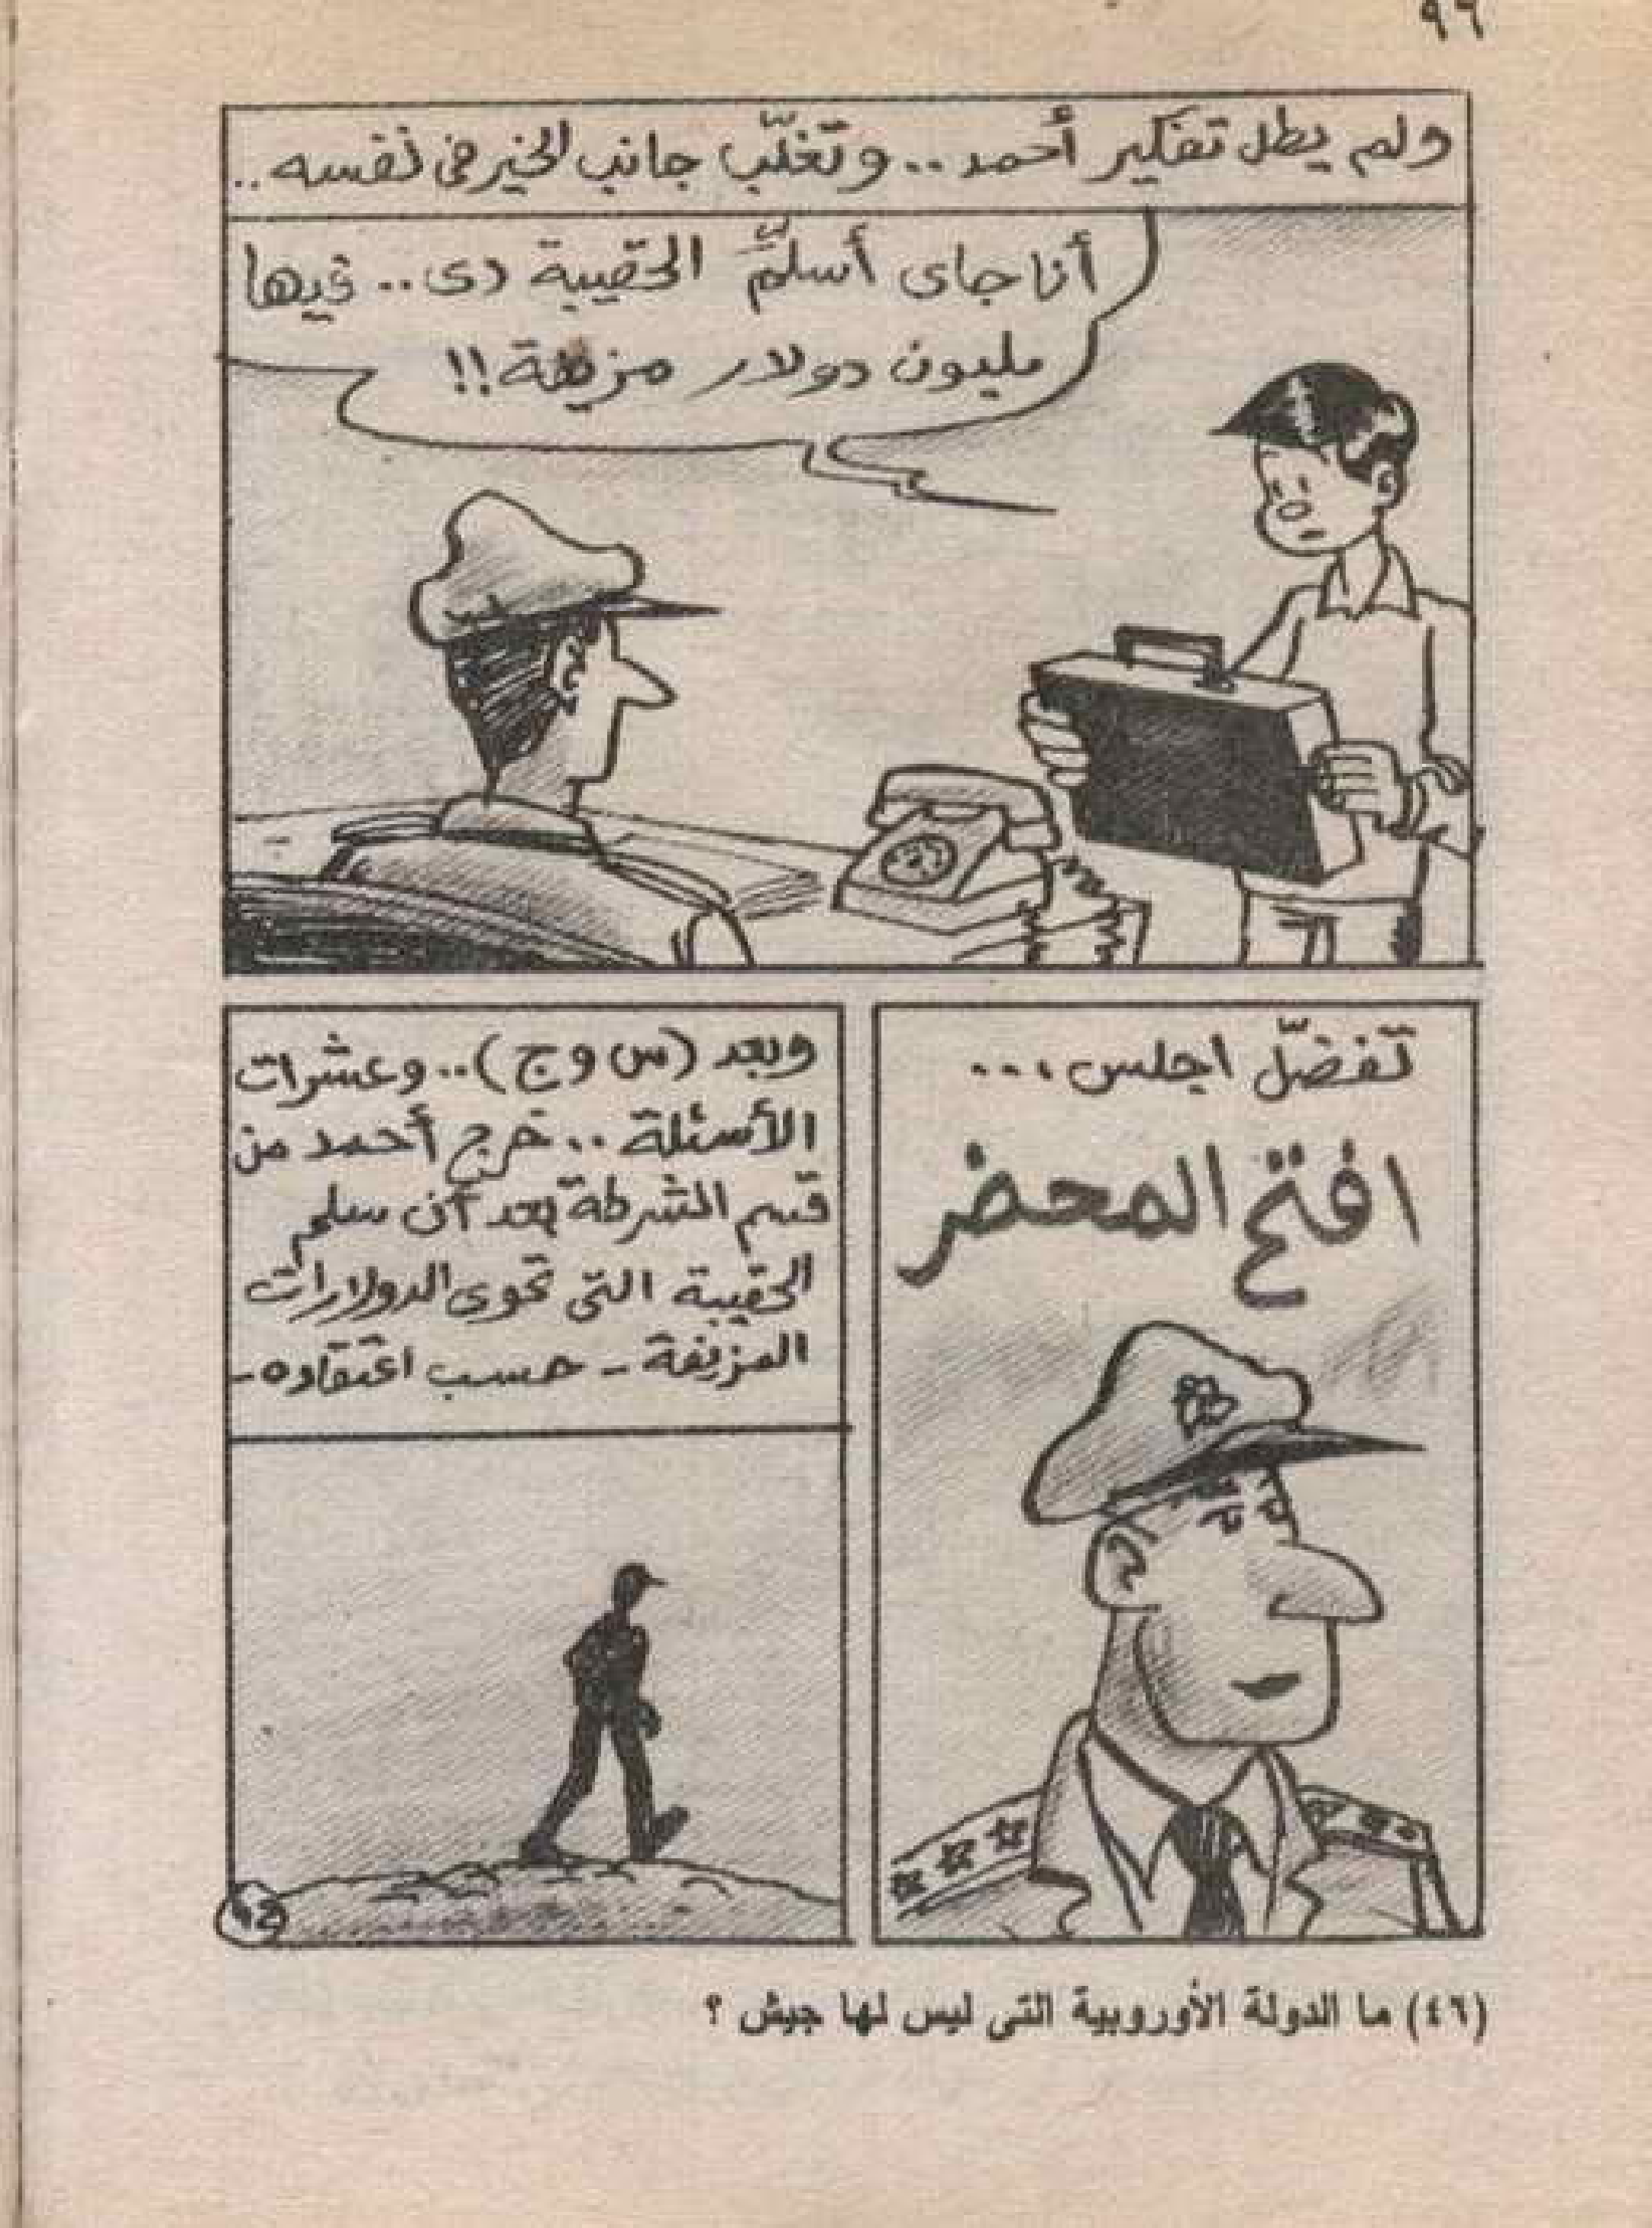 ٩٦
ولم يطل تفكير أحمد.. وتغلّب جانب الخير فى نفسه..
أنا جاى أسلمّ الحقيبة دى.. فيها
مليون دولار مزيفة!!
تفضّل اجلس...
افتح المحضر
وبعد (س وج).. وعشرات
الأسئلة.. خرج أحمد من
قسم الشرطة بعد أن سلم
الحقيبة التى تحوى الدولارات
المزيفة - حسب اعتقاده -
(٤٦) ما الدولة الأوروبية التى ليس لها جيش ؟